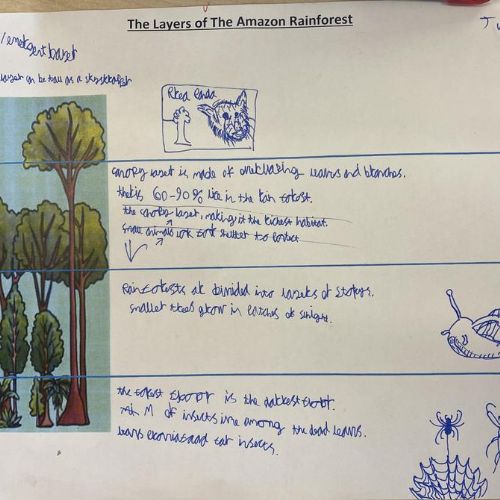 The Layers of The Amazon Rainforest
emergent layer
layer can be tall as a skyskraper
Red Panda
canopy layer is made of overlaping leaves and branches.
theris 60-90% life in the rain forest.
the canopy layer, making it the richest habitat.
small animals look for shelter to protect
Rainforests ar divided into layers or storeys.
smaller trees grow in patches of sunlight.
the forest floor is the darkest floor.
M of insects live among the dead leaves.
and eat insects.